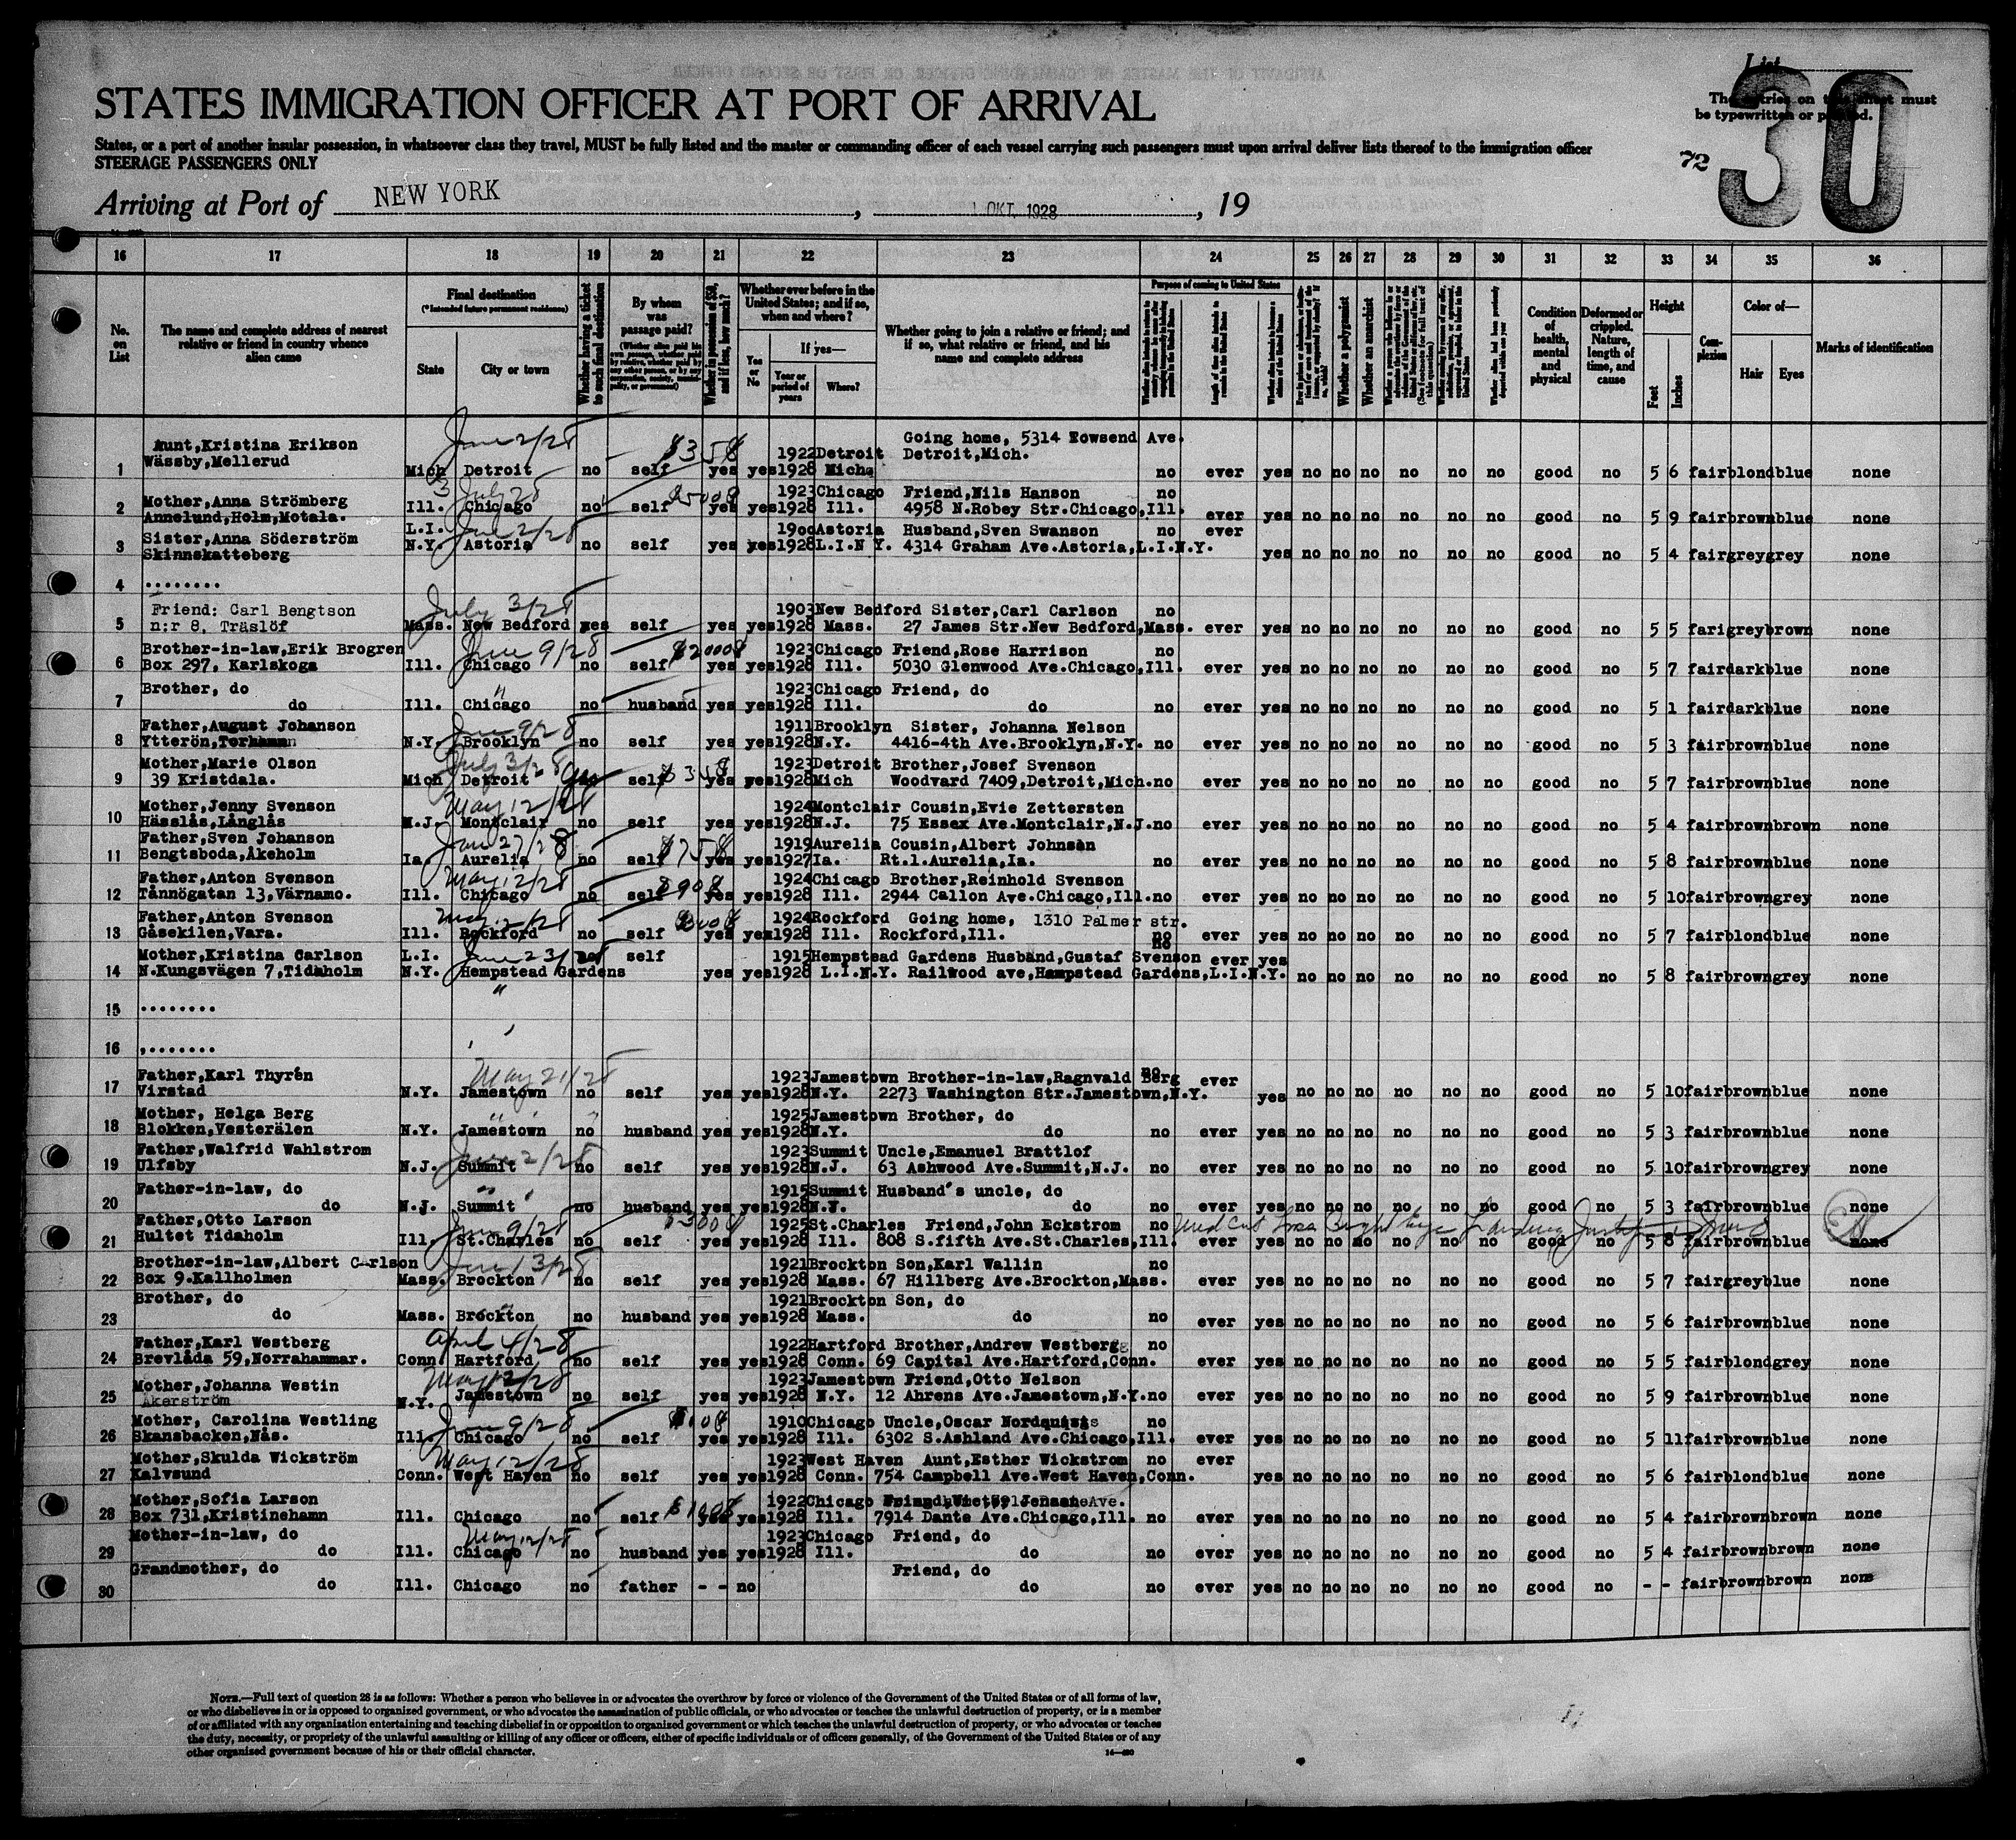 List
The entries on this sheet must
be typewritten or printed.
30
72
STATES IMMIGRATION OFFICER AT PORT OF ARRIVAL
States, or a port of another insular possession, in whatsoever class they travel, MUST be fully listed and the master or commanding officer of each vessel carrying such passengers must upon arrival deliver lists thereof to the immigration officer
STEERAGE PASSENGERS ONLY
Arriving at Port of NEW YORK , 1 OKT. 1928 , 19
16 17 18 19 20 21 22 23 24 25 26 27 28 29 30 31 32 33 34 35 36
No. on List
The name and complete address of nearest relative or friend in country whence alien came
Final destination
(*Intended future permanent residence)
State
City or town
Whether having a ticket to such final destination
By whom was passage paid?
Whether in possession of $50, and if less, how much?
Whether ever before in the United States; and if so, when and where?
Yes or No
If yes—
Year or period of years
Where?
Whether going to join a relative or friend; and if so, what relative or friend, and his name and complete address
Purpose of coming to United States
Whether a polygamist
Whether an anarchist
Condition of health, mental and physical
Deformed or crippled. Nature, length of time, and cause
Height
Feet
Inches
Complexion
Color of—
Hair
Eyes
Marks of identification
June 2/28 $35 Going home, 5314 Ave.
Aunt,Kristina Erikson 1922 Detroit Detroit,Mich.
1 Wässby,Mellerud Mich Detroit no self yes yes 1928 Mich. no ever yes no no no no no no good no 5 6 fair blond blue none
July 28 $500
Mother,Anna Strömberg 1923 Chicago Friend,Nils Hanson no
2 Annelund,Holm,Motala. Ill. Chicago no self yes yes 1928 Ill. 4958 N.Robey Str.Chicago,Ill. ever yes no no no no no no good no 5 9 fair brown blue none
Sister,Anna Söderström L.I. 2/28 Astoria Husband,Sven Swanson no ever
3 Skinnskatteberg N.Y. Astoria no self yes yes 1928 L.I.N Y. 4314 Graham Ave.Astoria,L.I.N.Y. yes no no no no no no good no 5 4 fair grey grey none
4 ........
Friend: Carl Bengtson July 3/28 1903 New Bedford Sister,Carl Carlson no
5 n:r 8, Träslöf Mass. New Bedford yes self yes yes 1928 Mass. 27 James Str.New Bedford,Mass. ever yes no no no no no no good no 5 5 fari grey brown none
Brother-in-law,Erik Brogren June 9/28 $2000 1923 Chicago Friend,Rose Harrison no
6 Box 297, Karlskoga Ill. Chicago no self yes yes 1928 Ill. 5030 Glenwood Ave.Chicago,Ill. ever yes no no no no no no good no 5 7 fair dark blue none
Brother, do " 1923 Chicago Friend, do
7 do Ill. Chicago no husband yes yes 1928 Ill. do no ever yes no no no no no no good no 5 1 fair dark blue none
Father,August Johanson June 9/28 1911 Brooklyn Sister, Johanna Nelson
8 Ytterön, N.Y. Brooklyn no self yes yes 1928 N.Y. 4416-4th Ave.Brooklyn,N.Y. no ever yes no no no no no no good no 5 3 fair brown blue none
Mother,Marie Olson July 3/28 $35 1923 Detroit Brother,Josef Svenson
9 39 Kristdala. Mich Detroit yes self yes yes 1928 Mich Woodvard 7409,Detroit,Mich. no ever yes no no no no no no good no 5 7 fair brown blue none
Mother,Jenny Svenson May 12/28 1924 Montclair Cousin,Evie Zettersten
10 Hässlås,Långlås N.J. Montclair no self yes yes 1928 N.J. 75 Essex Ave.Montclair,N.J. no ever yes no no no no no no good no 5 4 fair brown brown none
Father,Sven Johanson 27/28 $75 1919 Aurelia Cousin,Albert Johnson
11 Bengtsboda,Åkeholm Ia. Aurelia no self yes yes 1927 Ia. Rt.1.Aurelia,Ia. no ever yes no no no no no no good no 5 8 fair brown blue none
Father,Anton Svenson May 12/28 $90 1924 Chicago Brother,Reinhold Svenson
12 Tånnögatan 13,Värnamo. Ill. Chicago no self yes yes 1928 Ill. 2944 Callon Ave.Chicago,Ill. no ever yes no no no no no no good no 5 10 fair brown grey none
Father,Anton Svenson May 12/28 1924 Rockford Going home, 1310 Palmer str.
13 Gåsekilen,Vara. Ill. Rockford no self yes yes 1928 Ill. Rockford,Ill. no ever yes no no no no no no good no 5 7 fair blond blue none
Mother,Kristina Carlson L.I. June 23/28 self 1915 Hempstead Gardens Husband,Gustaf Svenson no ever yes
14 N.Kungsvägen 7,Tidaholm N.Y. Hempstead Gardens yes yes 1928 L.I.N.Y. Railwood ave,Hempstead Gardens,L.I.N.Y. no no no no no no good no 5 8 fair brown grey none
15 ........
16 ........
Father,Karl Thyrén May 21/28 1923 Jamestown Brother-in-law,Ragnvald Berg no ever
17 Virstad N.Y. Jamestown no self yes yes 1928 N.Y. 2273 Washington Str.Jamestown,N.Y. yes no no no no no no good no 5 10 fair brown blue none
Mother, Helga Berg 1925 Jamestown Brother, do
18 Blokken,Vesterälen N.Y. Jamestown no husband yes yes 1928 N.Y. do no ever yes no no no no no no good no 5 3 fair brown blue none
Father,Walfrid Wahlstrom June 2/28 1923 Summit Uncle,Emanuel Brattlof
19 Ulfsby N.J. Summit no self yes yes 1928 N.J. 63 Ashwood Ave.Summit,N.J. no ever yes no no no no no no good no 5 10 fair brown grey none
Father-in-law, do 1915 Summit Husband's uncle, do
20 do N.J. Summit no husband yes yes 1928 N.J. do no ever yes no no no no no no good no 5 3 fair brown blue none
Father,Otto Larson June 9/28 $300 1925 St.Charles Friend,John Eckstrom no Med Cert
21 Hultet Tidaholm Ill. St.Charles no self yes yes 1928 Ill. 808 S.fifth Ave.St.Charles,Ill. ever yes no no no no no no good no 5 8 fair brown blue none
Brother-in-law,Albert Carlson June 13/28 1921 Brockton Son,Karl Wallin no
22 Box 9.Kallholmen Mass. Brockton no self yes yes 1928 Mass. 67 Hillberg Ave.Brockton,Mass. ever yes no no no no no no good no 5 7 fair grey blue none
Brother, do 1921 Brockton Son, do
23 do Mass. Brockton no husband yes yes 1928 Mass. do no ever yes no no no no no no good no 5 6 fair brown blue none
Father,Karl Westberg April 4/28 1922 Hartford Brother,Andrew Westberg no
24 Brevlåda 59,Norrahammar. Conn Hartford no self yes yes 1928 Conn. 69 Capital Ave.Hartford,Conn. ever yes no no no no no no good no 5 5 fair blond grey none
Mother,Johanna Westin May 12/28 1923 Jamestown Friend,Otto Nelson
25 Åkerström N.Y. Jamestown no self yes yes 1928 N.Y. 12 Ahrens Ave.Jamestown,N.Y. no ever yes no no no no no no good no 5 9 fair brown blue none
Mother, Carolina Westling June 9/28 1910 Chicago Uncle,Oscar no
26 Skansbacken,Nås. Ill. Chicago no self yes yes 1928 Ill. 6302 S.Ashland Ave.Chicago,Ill. ever yes no no no no no no good no 5 11 fair brown blue none
Mother,Skulda Wickström May 12/28 1923 West Haven Aunt,Esther Wickstrom no ever
27 Kalvsund Conn. West Haven no self yes yes 1928 Conn. 754 Campbell Ave.West Haven,Conn. yes no no no no no no good no 5 6 fair blond blue none
Mother,Sofia Larson $100 1922 Chicago Ave.
28 Box 731,Kristinehamn Ill. Chicago no self yes yes 1928 Ill. 7914 Dante Ave.Chicago,Ill. no ever yes no no no no no no good no 5 4 fair brown brown none
Mother-in-law, do May 12/28 1923 Chicago Friend, do
29 do Ill. Chicago no husband yes yes 1928 Ill. do no ever yes no no no no no no good no 5 4 fair brown brown none
Grandmother, do Friend, do
30 do Ill. Chicago no father - - no do no ever yes no no no no no no good no - - fair brown brown none
NOTE.—Full text of question 28 is as follows: Whether a person who believes in or advocates the overthrow by force or violence of the Government of the United States or of all forms of law,
or who disbelieves in or is opposed to organized government, or who advocates the assassination of public officials, or who advocates or teaches the unlawful destruction of property, or is a member
of or affiliated with any organization entertaining and teaching disbelief in or opposition to organized government or which teaches the unlawful destruction of property, or who advocates or teaches
the duty, necessity, or propriety of the unlawful assaulting or killing of any officer or officers, either of specific individuals or of officers generally, of the Government of the United States or of any
other organized government because of his or their official character.